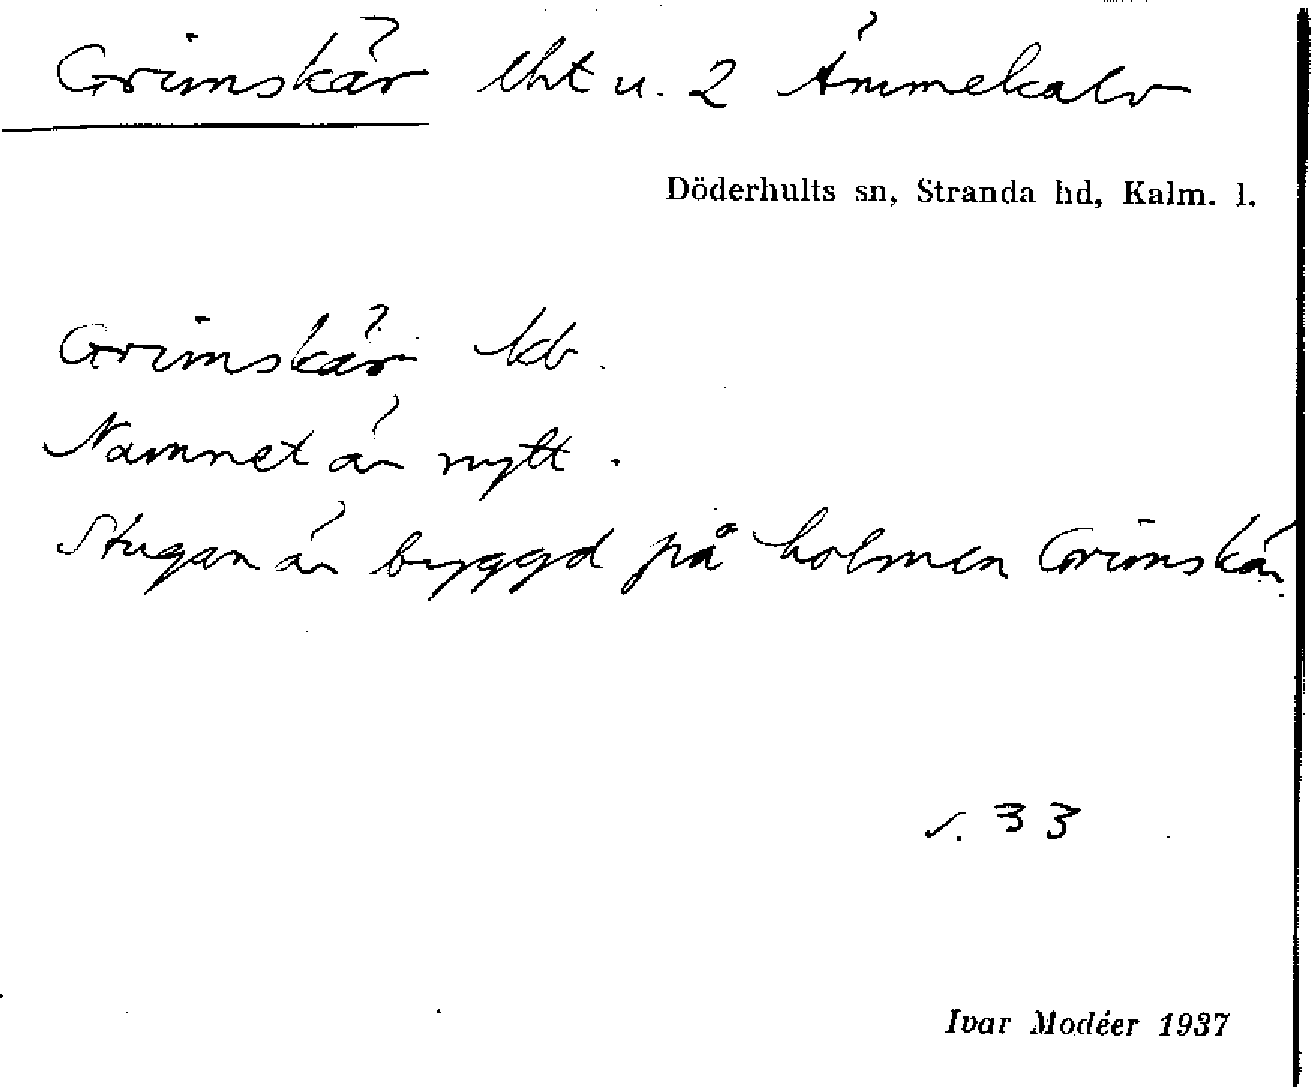 Grimskär lht u. 2 Ämmekalv
Döderhults sn, Stranda hd, Kalm. l.
Grimskär kb.
Namnet är nytt.
Stugan är byggd på holmen Grimskär.
s. 33
Ivar Modéer 1937